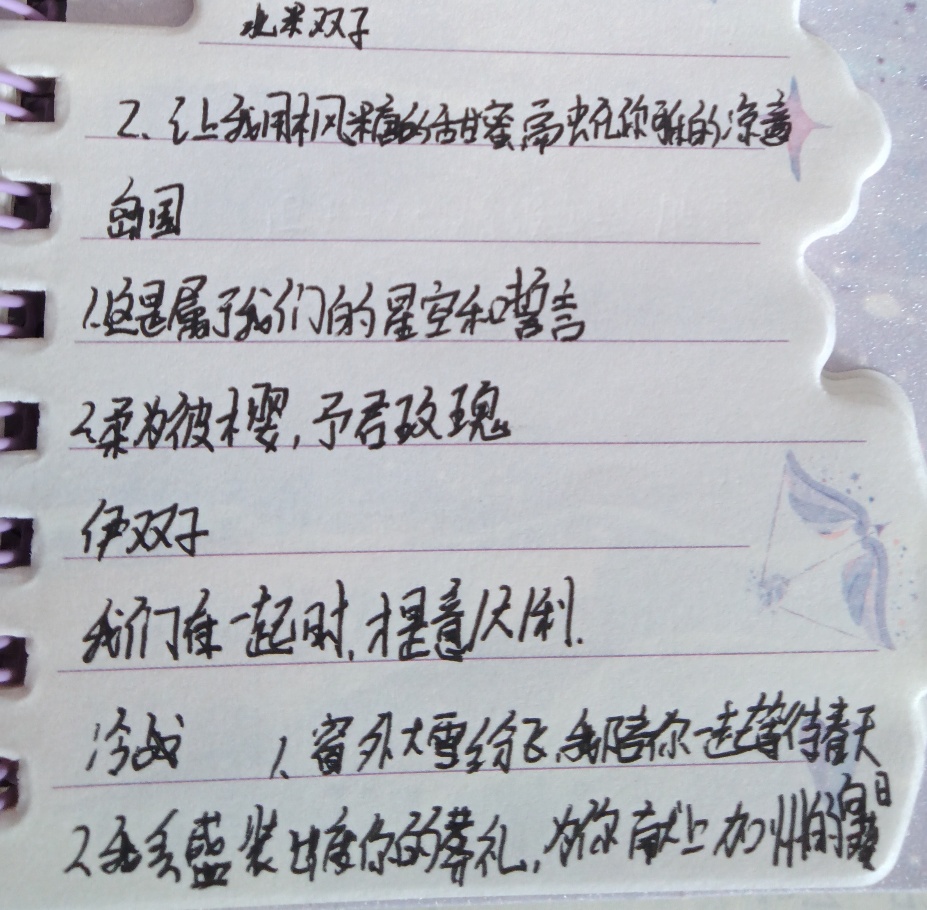 北米双子
2、让我用枫糖的甜蜜带走你唯的凉意
岛国
1.这是属于我们的星空和誓言
2.柔为彼樱,予君玫瑰
伊双子
我们在一起时,才是意大利.
冷战 1、窗外大雪纷飞,我陪你一起等待春天
2.我会盛装出席你的葬礼,为你献上加州的